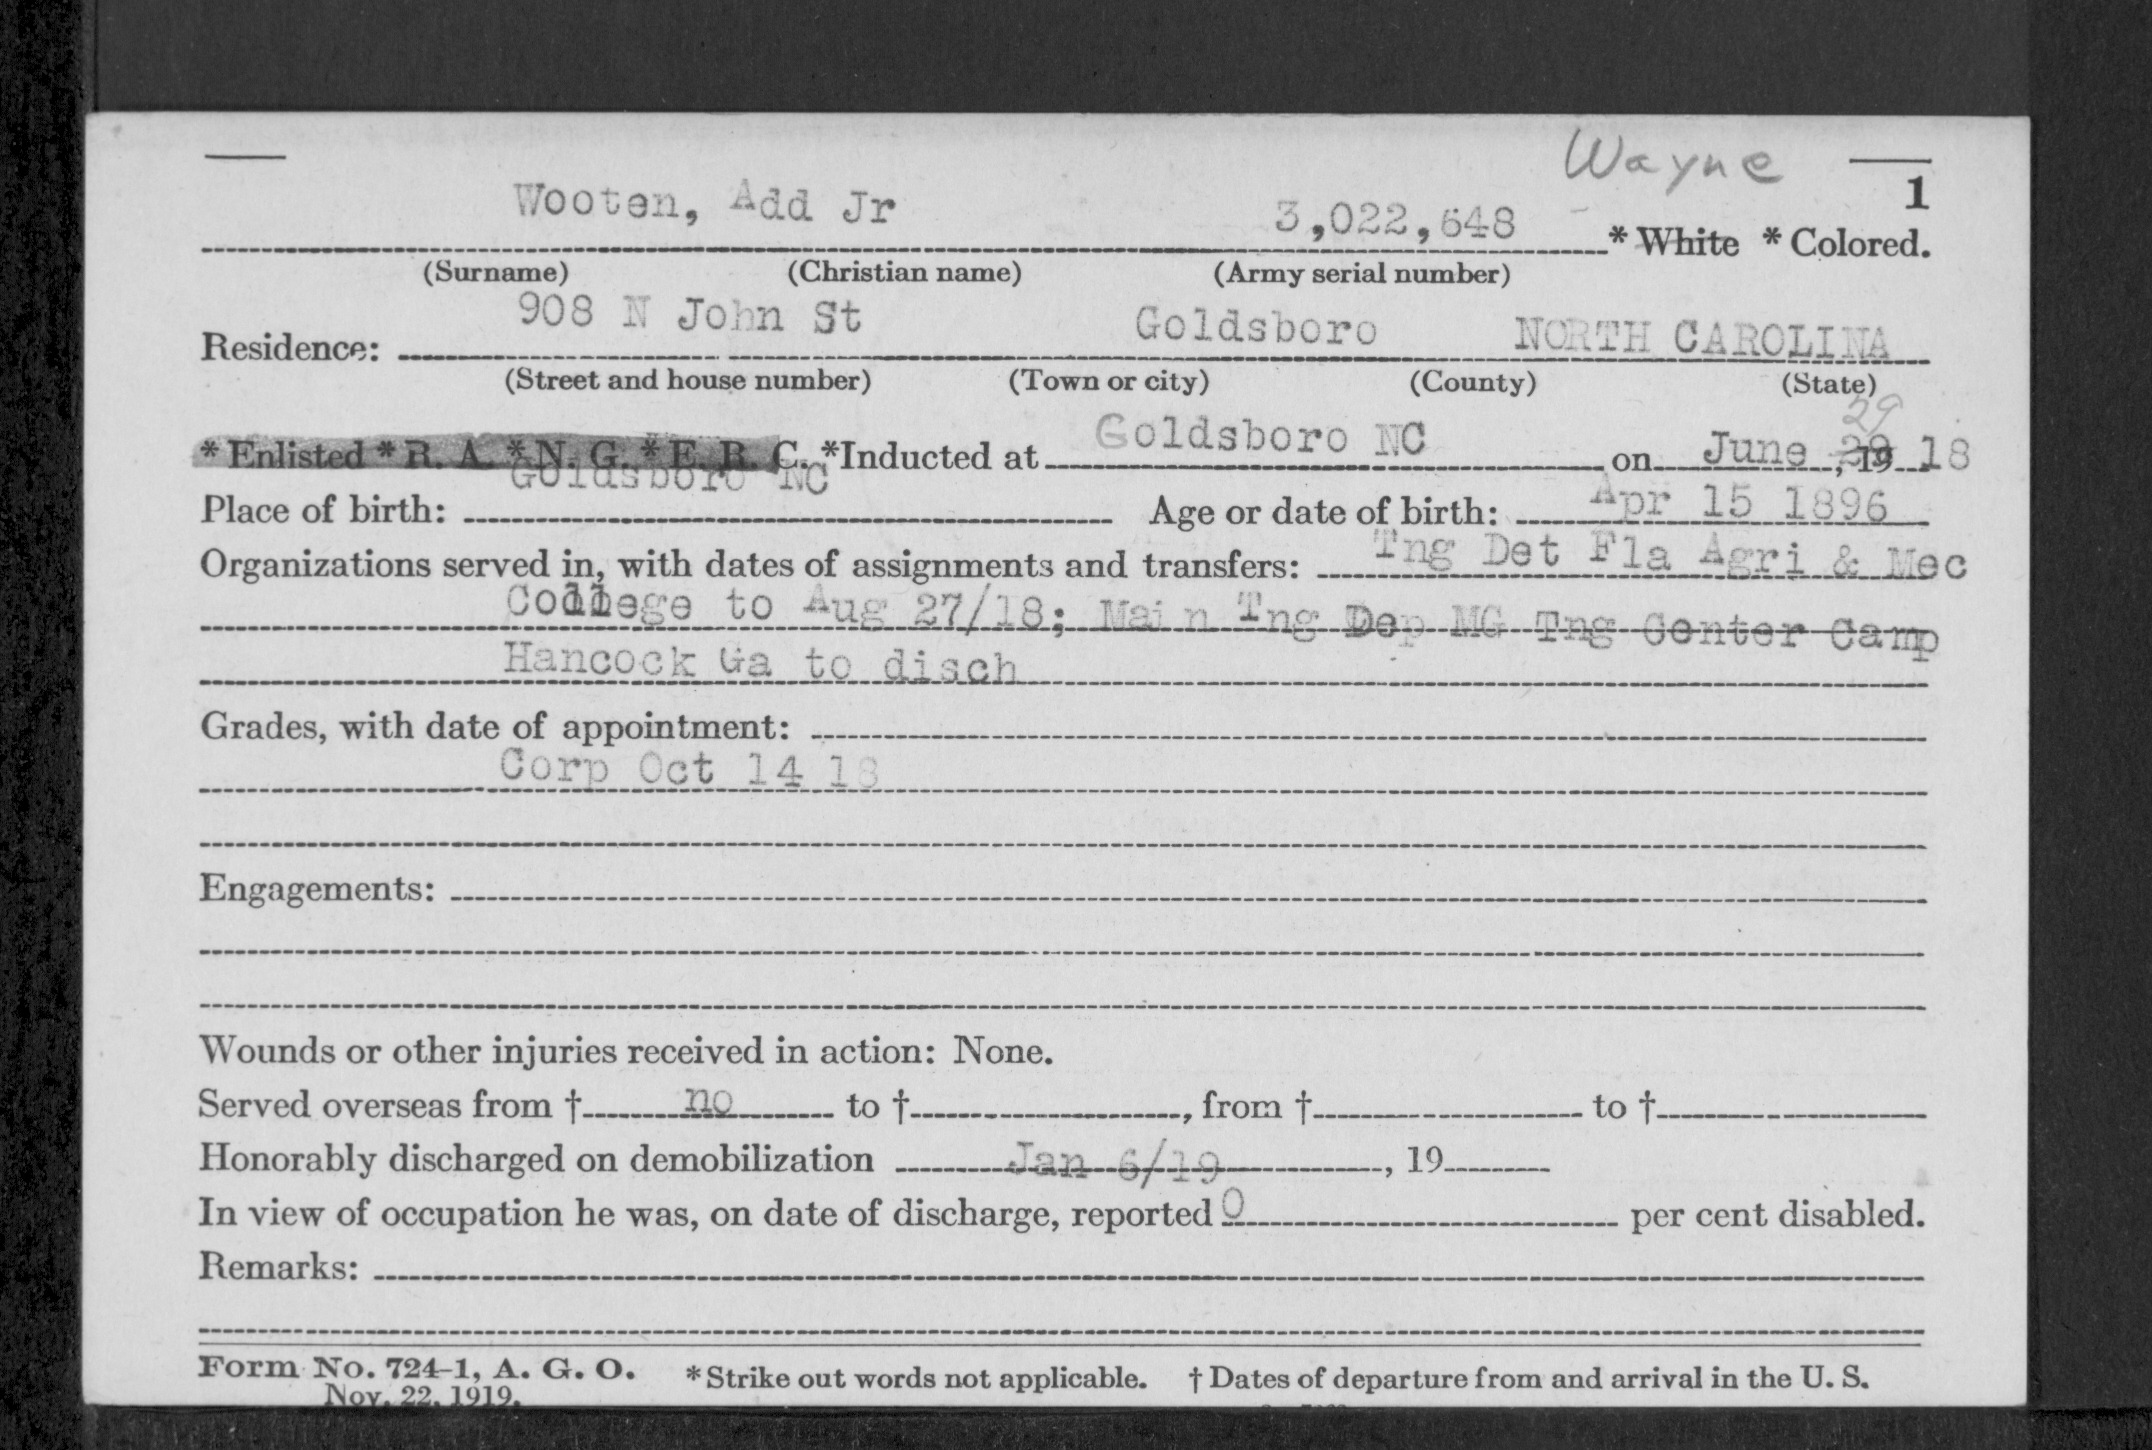 Wayne
1
Wooten, Add Jr 3,022,648 * White * Colored.
(Surname) (Christian name) (Army serial number)
908 N John St Goldsboro NORTH CAROLINA
Residence:
(Street and house number) (Town or city) (County) (State)
29
* Enlisted * R. A. * N. G. * E. R. C. *Inducted at Goldsboro NC on June 29, 19 18
Goldsboro NC
Place of birth: Age or date of birth: Apr 15 1896
Organizations served in, with dates of assignments and transfers: Tng Det Fla Agri & Mec
College to Aug 27/18; Main Tng Dep MG Tng Center Camp
Hancock Ga to disch
Grades, with date of appointment:
Corp Oct 14 18
Engagements:
Wounds or other injuries received in action: None.
Served overseas from † no to †, from † to †
Honorably discharged on demobilization Jan 6/19, 19
In view of occupation he was, on date of discharge, reported 0 per cent disabled.
Remarks:
Form No. 724-1, A. G. O. * Strike out words not applicable. † Dates of departure from and arrival in the U. S.
Nov. 22, 1919.